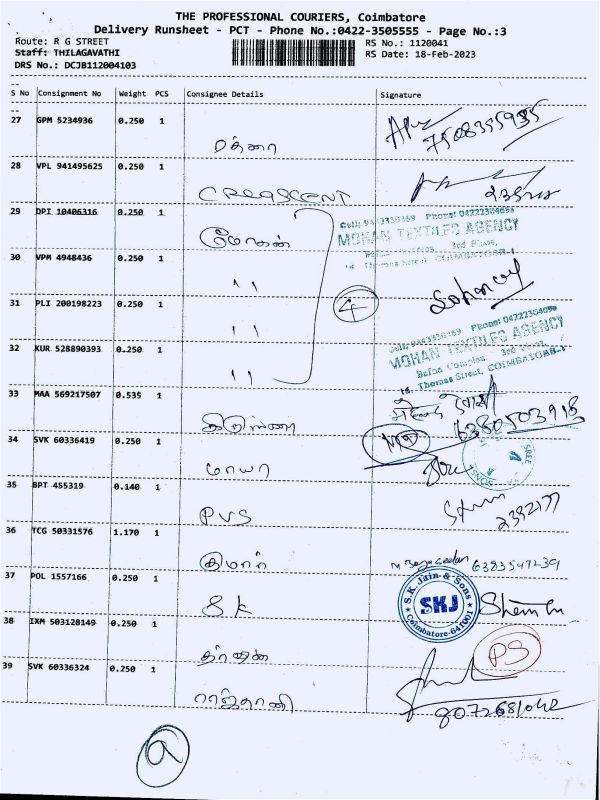 THE PROFESSIONAL COURIERS, Coimbatore
Delivery Runsheet - PCT - Phone No.:0422-3505555 - Page No.:3
Route: R G STREET
RS No.: 1120041
Staff: THILAGAVATHI
RS Date: 18-Feb-2023
DRS No.: DCJB112004103
S No Consignment No Weight PCS Consignee Details Signature
27 GPM 5234936 0.250 1
28 VPL 941495625 0.250 1
CRESCENT
29 DPI 10406316 0.250 1
மோகன்
MOHAN TEXTILES AGENCY
30 VPM 4948436 0.250 1
"
4
31 PLI 200198223 0.250 1
"
MOHAN TEXTILES AGENCY
Bafna Complex, 3rd Floor,
16, Thomas Street, COIMBATORE-1
32 KUR 528890393 0.250 1
"
33 MAA 569217507 0.535 1
6380503918
34 SVK 60336419 0.250 1
மாயா
SREE
SONS
35 BPT 455319 0.140 1
PVS
2392177
36 TCG 50331576 1.170 1
குமார்
6383547239
37 POL 1557166 0.250 1
SK
S.K. Jain & Sons
SKJ
Coimbatore-641001
38 IXM 503128149 0.250 1
PS
39 SVK 60336324 0.250 1
ராஜ்தானி
8072681042